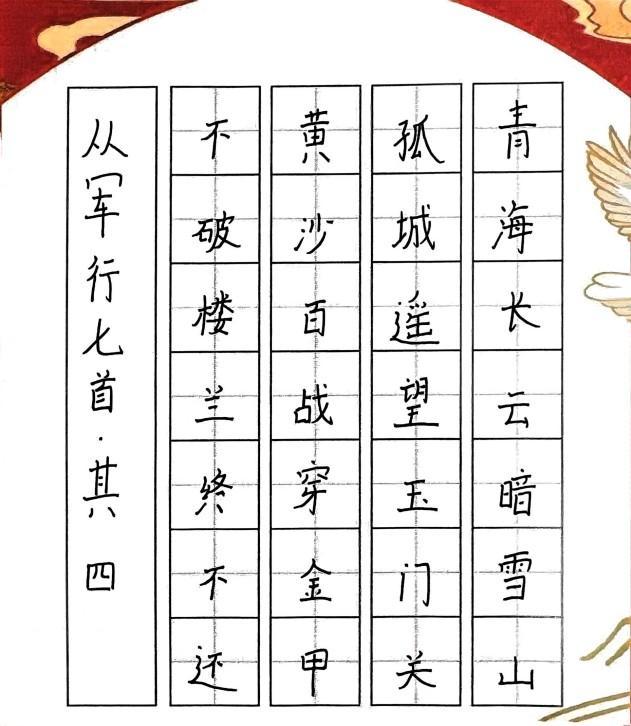 青海长云暗雪山
孤城遥望玉门关
黄沙百战穿金甲
不破楼兰终不还
从军行七首·其四